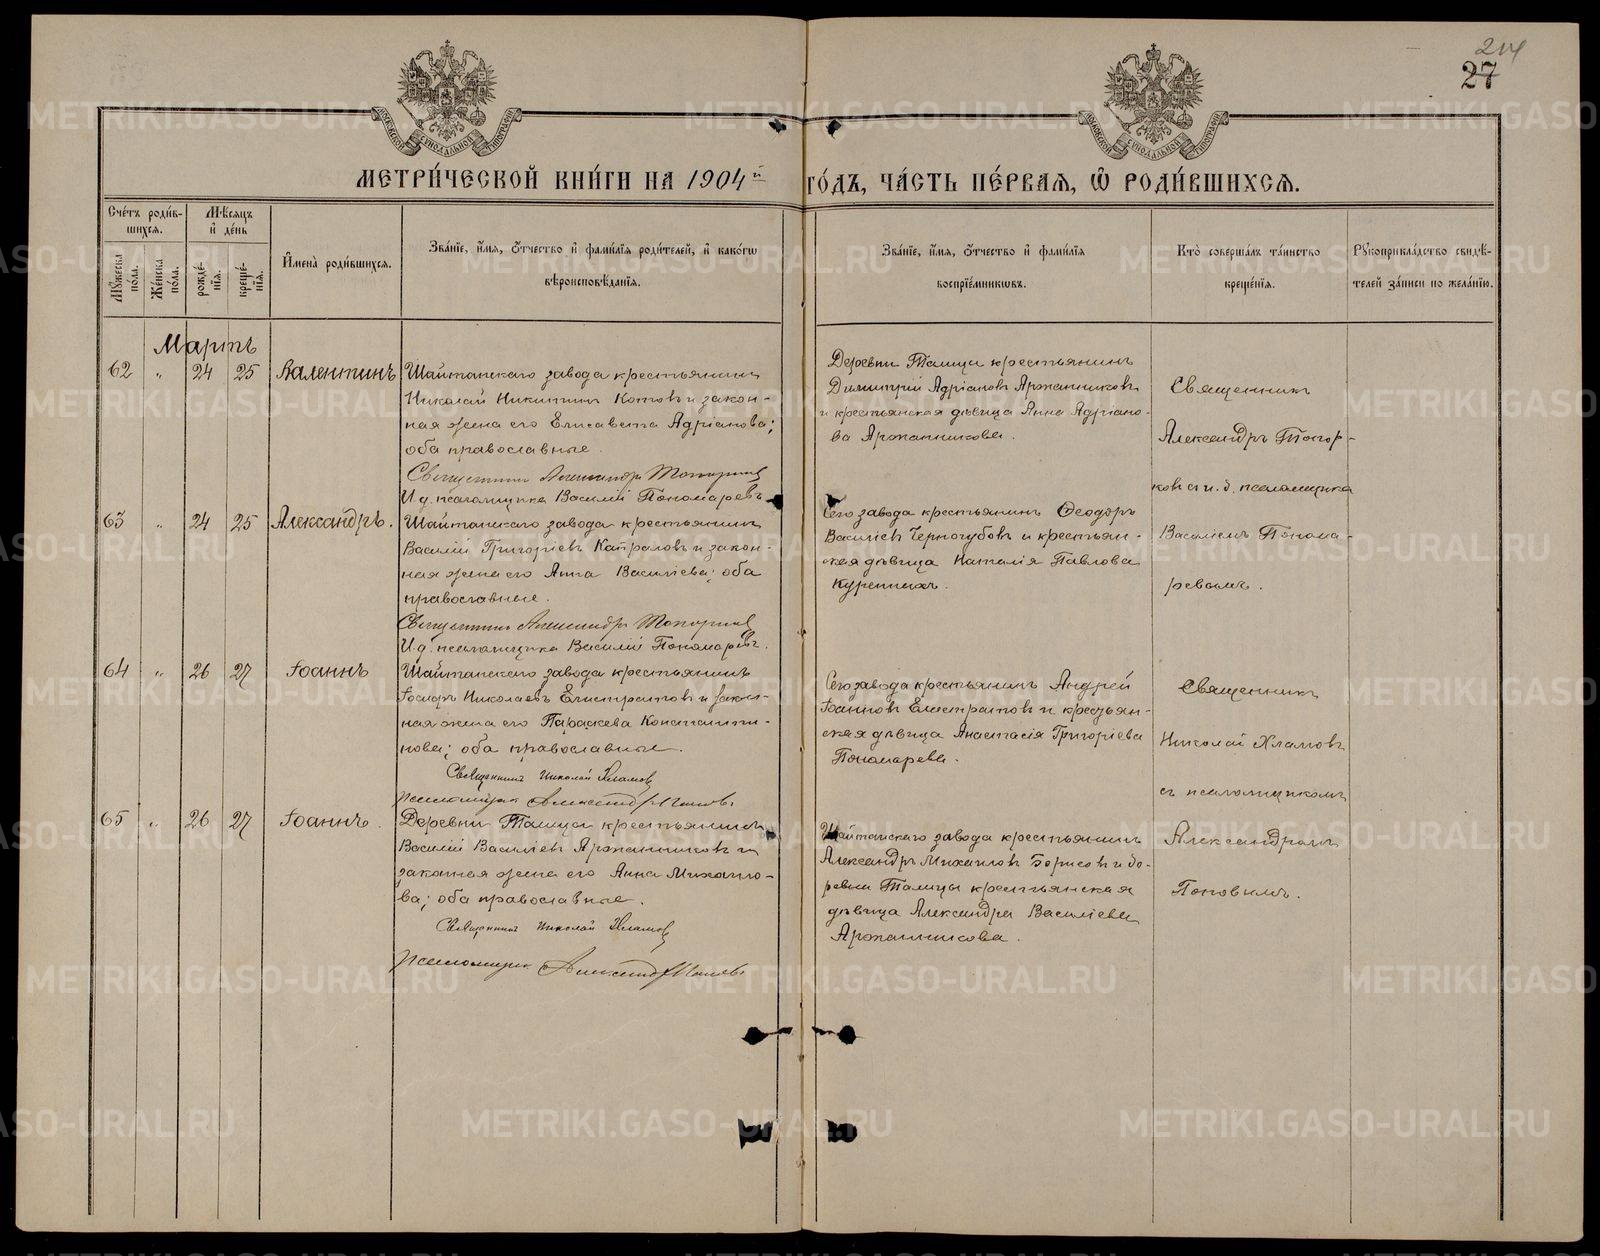 204
27
МОСКОВСКОЙ СѴНОДАЛЬНОЙ ТИПОГРАФІИ
МОСКОВСКОЙ СѴНОДАЛЬНОЙ ТИПОГРАФІИ
МЕТРИ́ЧЕСКОЙ КНИ́ГИ НА 1904й ГО́ДЪ, ЧА́СТЬ ПЕ́РВАЯ, Ѽ РОДИ́ВШИХСЯ.
Сче́тъ роди́в-
шихся.
Мѣ́сяцъ
и де́нь
Мꙋ́жеска
по́ла.
Же́нска
по́ла.
рожде́-
нїя.
креще́-
нїя.
И҆мена̀ роди́вшихся.
Зва́нїе, и҆́мя, ѻ҆́тчество и҆ фами́лїя роди́телей, и҆ како́гѡ
вѣроисповѣ́данїя.
Зва́нїе, и҆́мя, ѻ҆́тчество и҆ фами́лїя
воспрїе́мникѡвъ.
Кто̀ соверша́лъ та́инство
креще́нїя.
Рꙋкоприкла́дство свидѣ́-
телей за́писи по жела́нїю.
Мартъ
62 " 24 25 Валентинъ
Шайтанскаго завода крестьянинъ
Николай Никитинъ Котовъ и закон-
ная жена его Елисавета Адріанова;
оба православные.
Священникъ Александръ Топорковъ
И. д. псаломщика Василій Пономаревъ
Деревни Талицы крестьянинъ
Димитрій Адріановъ Аржанниковъ
и крестьянская дѣвица Анна Адріано-
ва Аржанникова.
Священникъ
Александръ Топор-
ковъ съ и. д. псаломщика
Василіемъ Понома-
ревымъ.
63 " 24 25 Александръ.
Шайтанскаго завода крестьянинъ
Василій Григоріевъ Капраловъ и закон-
ная жена его Анна Василіева; оба
православные.
Священникъ Александръ Топорковъ
И. д. псаломщика Василій Пономаревъ.
Сего завода крестьянинъ Ѳеодоръ
Василіевъ Черногубовъ и крестьян-
ская дѣвица Наталія Павлова
Куренныхъ.
64 " 26 27 Іоаннъ
Шайтанскаго завода крестьянинъ
Николаевъ Елистратовъ и закон-
ная жена его Параскева Константи-
нова; оба православные.
Священникъ Николай Хламовъ
Псаломщикъ Александръ Поповъ
Сего завода крестьянинъ Андрей
Іоанновъ Елистратовъ и крестьян-
ская дѣвица Анастасія Григоріева
Пономарева.
Священникъ
Николай Хламовъ
съ псаломщикомъ
Александромъ
Поповымъ.
65 " 26 27 Іоаннъ.
Деревни Талицы крестьянинъ
Василій Василіевъ Аржанниковъ и
законная жена его Анна Михаило-
ва; оба православные.
Священникъ Николай Хламовъ
Псаломщикъ Александръ Поповъ
Шайтанскаго завода крестьянинъ
Александръ Михаиловъ Борисовъ и де-
ревни Талицы крестьянская
дѣвица Александра Василіева
Аржанникова.
METRIKI.GASO-URAL.RU